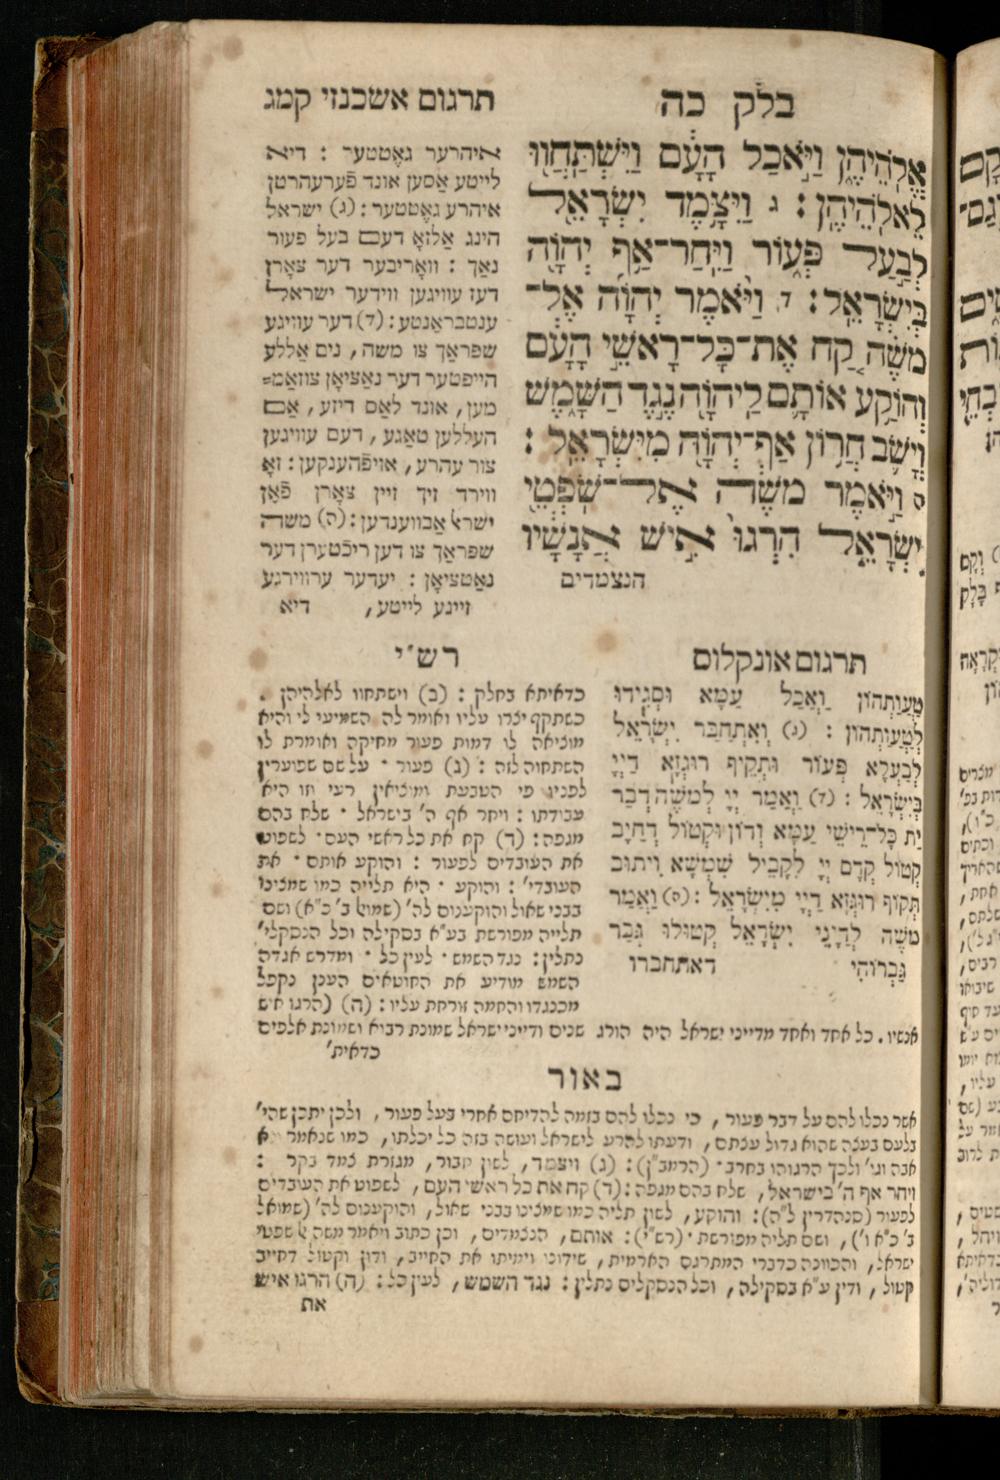 בלק כה
אֱלֹהֵיהֶ֑ן וַיֹּ֣אכַל הָעָ֔ם וַיִּֽשְׁתַּחֲו֖וּ
לֵאלֹהֵיהֶֽן : ג וַיִּצָּ֥מֶד יִשְׂרָאֵ֖ל
לְבַ֣עַל פְּע֑וֹר וַיִּֽחַר־אַ֥ף יְהוָ֖ה
בְּיִשְׂרָאֵֽל : ד וַיֹּ֨אמֶר יְהוָ֜ה אֶל־
מֹשֶׁ֗ה קַ֚ח אֶת־כָּל־רָאשֵׁ֣י הָעָ֔ם
וְהוֹקַ֥ע אוֹתָ֛ם לַֽיהוָ֖ה נֶ֣גֶד הַשָּׁ֑מֶשׁ
וְיָשֹׁ֛ב חֲר֥וֹן אַף־יְהוָ֖ה מִיִּשְׂרָאֵֽל :
ה וַיֹּ֣אמֶר מֹשֶׁ֔ה אֶל־שֹׁפְטֵ֖י
יִשְׂרָאֵ֑ל הִרְגוּ֙ אִ֣ישׁ אֲנָשָׁ֔יו
הנצמדים
תרגום אשכנזי קמג
איהרער גאָטטער : דיא
לייטע אַסען אונד פֿערעהרטן
איהרע גאָטטער : (ג) ישראל
הינג אַלזאָ דעם בעל פעור
נאָך : וואָריבער דער צאָרן
דעז עוויגען ווידער ישראל
ענטבראַנטע : (ד) דער עוויגע
שפראַך צו משה, נים אַללע
הייפטער דער נאַציאָן צוזאַמ=
מען, אונד לאַס דיזע, אַם
העללען טאַגע, דעם עוויגען
צור עהרע, אויפֿהענקען : זאָ
ווירד זיך זיין צאָרן פֿאָן
ישראל אַבווענדען : (ה) משה
שפראַך צו דען ריכֿטערן דער
נאַטציאָן : יעדער ערווירגע
זיינע לייטע, דיא
תרגום אונקלוס
טָעֲוָתְהוֹן וַאֲכַל עַמָּא וּסְגִידוּ
לְטָעֲוָתְהוֹן : (ג) וְאִתְחַבַּר יִשְׂרָאֵל
לְבַעֲלָא פְּעוֹר וּתְקֵיף רוּגְזָא דַיְיָ
בְּיִשְׂרָאֵל : (ד) וַאֲמַר יְיָ לְמֹשֶׁה דְּבַר
יַת כָּל־רֵישֵׁי עַמָּא וְדוּן וּקְטוֹל דְּחַיָּב
קְטוֹל קֳדָם יְיָ לָקֳבֵיל שִׁמְשָׁא וִיתוּב
תְּקוֹף רוּגְזָא דַיְיָ מִיִּשְׂרָאֵל : (ה) וַאֲמַר
מֹשֶׁה לְדַיָּנֵי יִשְׂרָאֵל קְטוּלוּ גְּבַר
גֻּבְרוֹהִי דאתחברו
רש״י
כדאיתא בחלק : (ב) וישתחוו לאלהיהן .
כשתקף יצרו עליו ואומר לה השמיעי לי והיא
מוציאה לו דמות פעור מחיקה ואומרת לו
השתחוה לזה : (ג) פעור · על שם שפוערין
לפניו פי הטבעת ומוציאין רעי וזו היא
עבודתו : ויחר אף ה' בישראל · שלח בהם
מגפה : (ד) קח את כל ראשי העם · לשפוט
את העובדים לפעור : והוקע אותם · את
העובדי' : והוקע · היא תלייה כמו שמצינו
בבני שאול והוקענום לה' (שמואל ב' כ״א) ושם
תלייה מפורשת בע״א בסקילה וכל הנסקלי'
נתלין : נגד השמש · לעין כל · ומדרש אגדה
השמש מודיע את החוטאים הענן נקפל
מכנגדו והחמה זורחת עליו : (ה) הרגו איש
אנשיו . כל אחד ואחד מדייני ישראל היה הורג שנים ודייני ישראל שמונת רבוא ושמונת אלפים
כדאית'
באור
אשר נכלו להם על דבר פעור, כי נכלו להם בזמה להדיחם אחרי בעל פעור, ולכן יתכן שהי'
בלעם בעצה שהוא גדול עצתם, ודעתו להרע לישראל ועושה בזה כל יכלתו, כמו שנאמר לא
אבה וגו' ולכך הרגוהו בחרב · (הרמב״ן) : (ג) ויצמד, לשון חבור, מגזרת צמד בקר :
ויחר אף ה' בישראל, שלח בהם מגפה : (ד) קח את כל ראשי העם, לשפוט את העובדים
לפעור (סנהדרין ל״ה) : והוקע, לשון תליה כמו שמצינו בבני שאול, והוקענום לה' (שמואל
ב' כ״א ו'), ושם תליה מפורשת · (רש״י) : אותם, הנצמדים, וכן כתוב ויאמר משה אל שפטי
ישראל, והכוונה כדברי המתרגם הארמית, שידונו וימיתו את החייב, ודון וקטול דחייב
קטול, ודין ע״א בסקילה, וכל הנסקלים נתלין : נגד השמש, לעין כל : (ה) הרגו איש
את